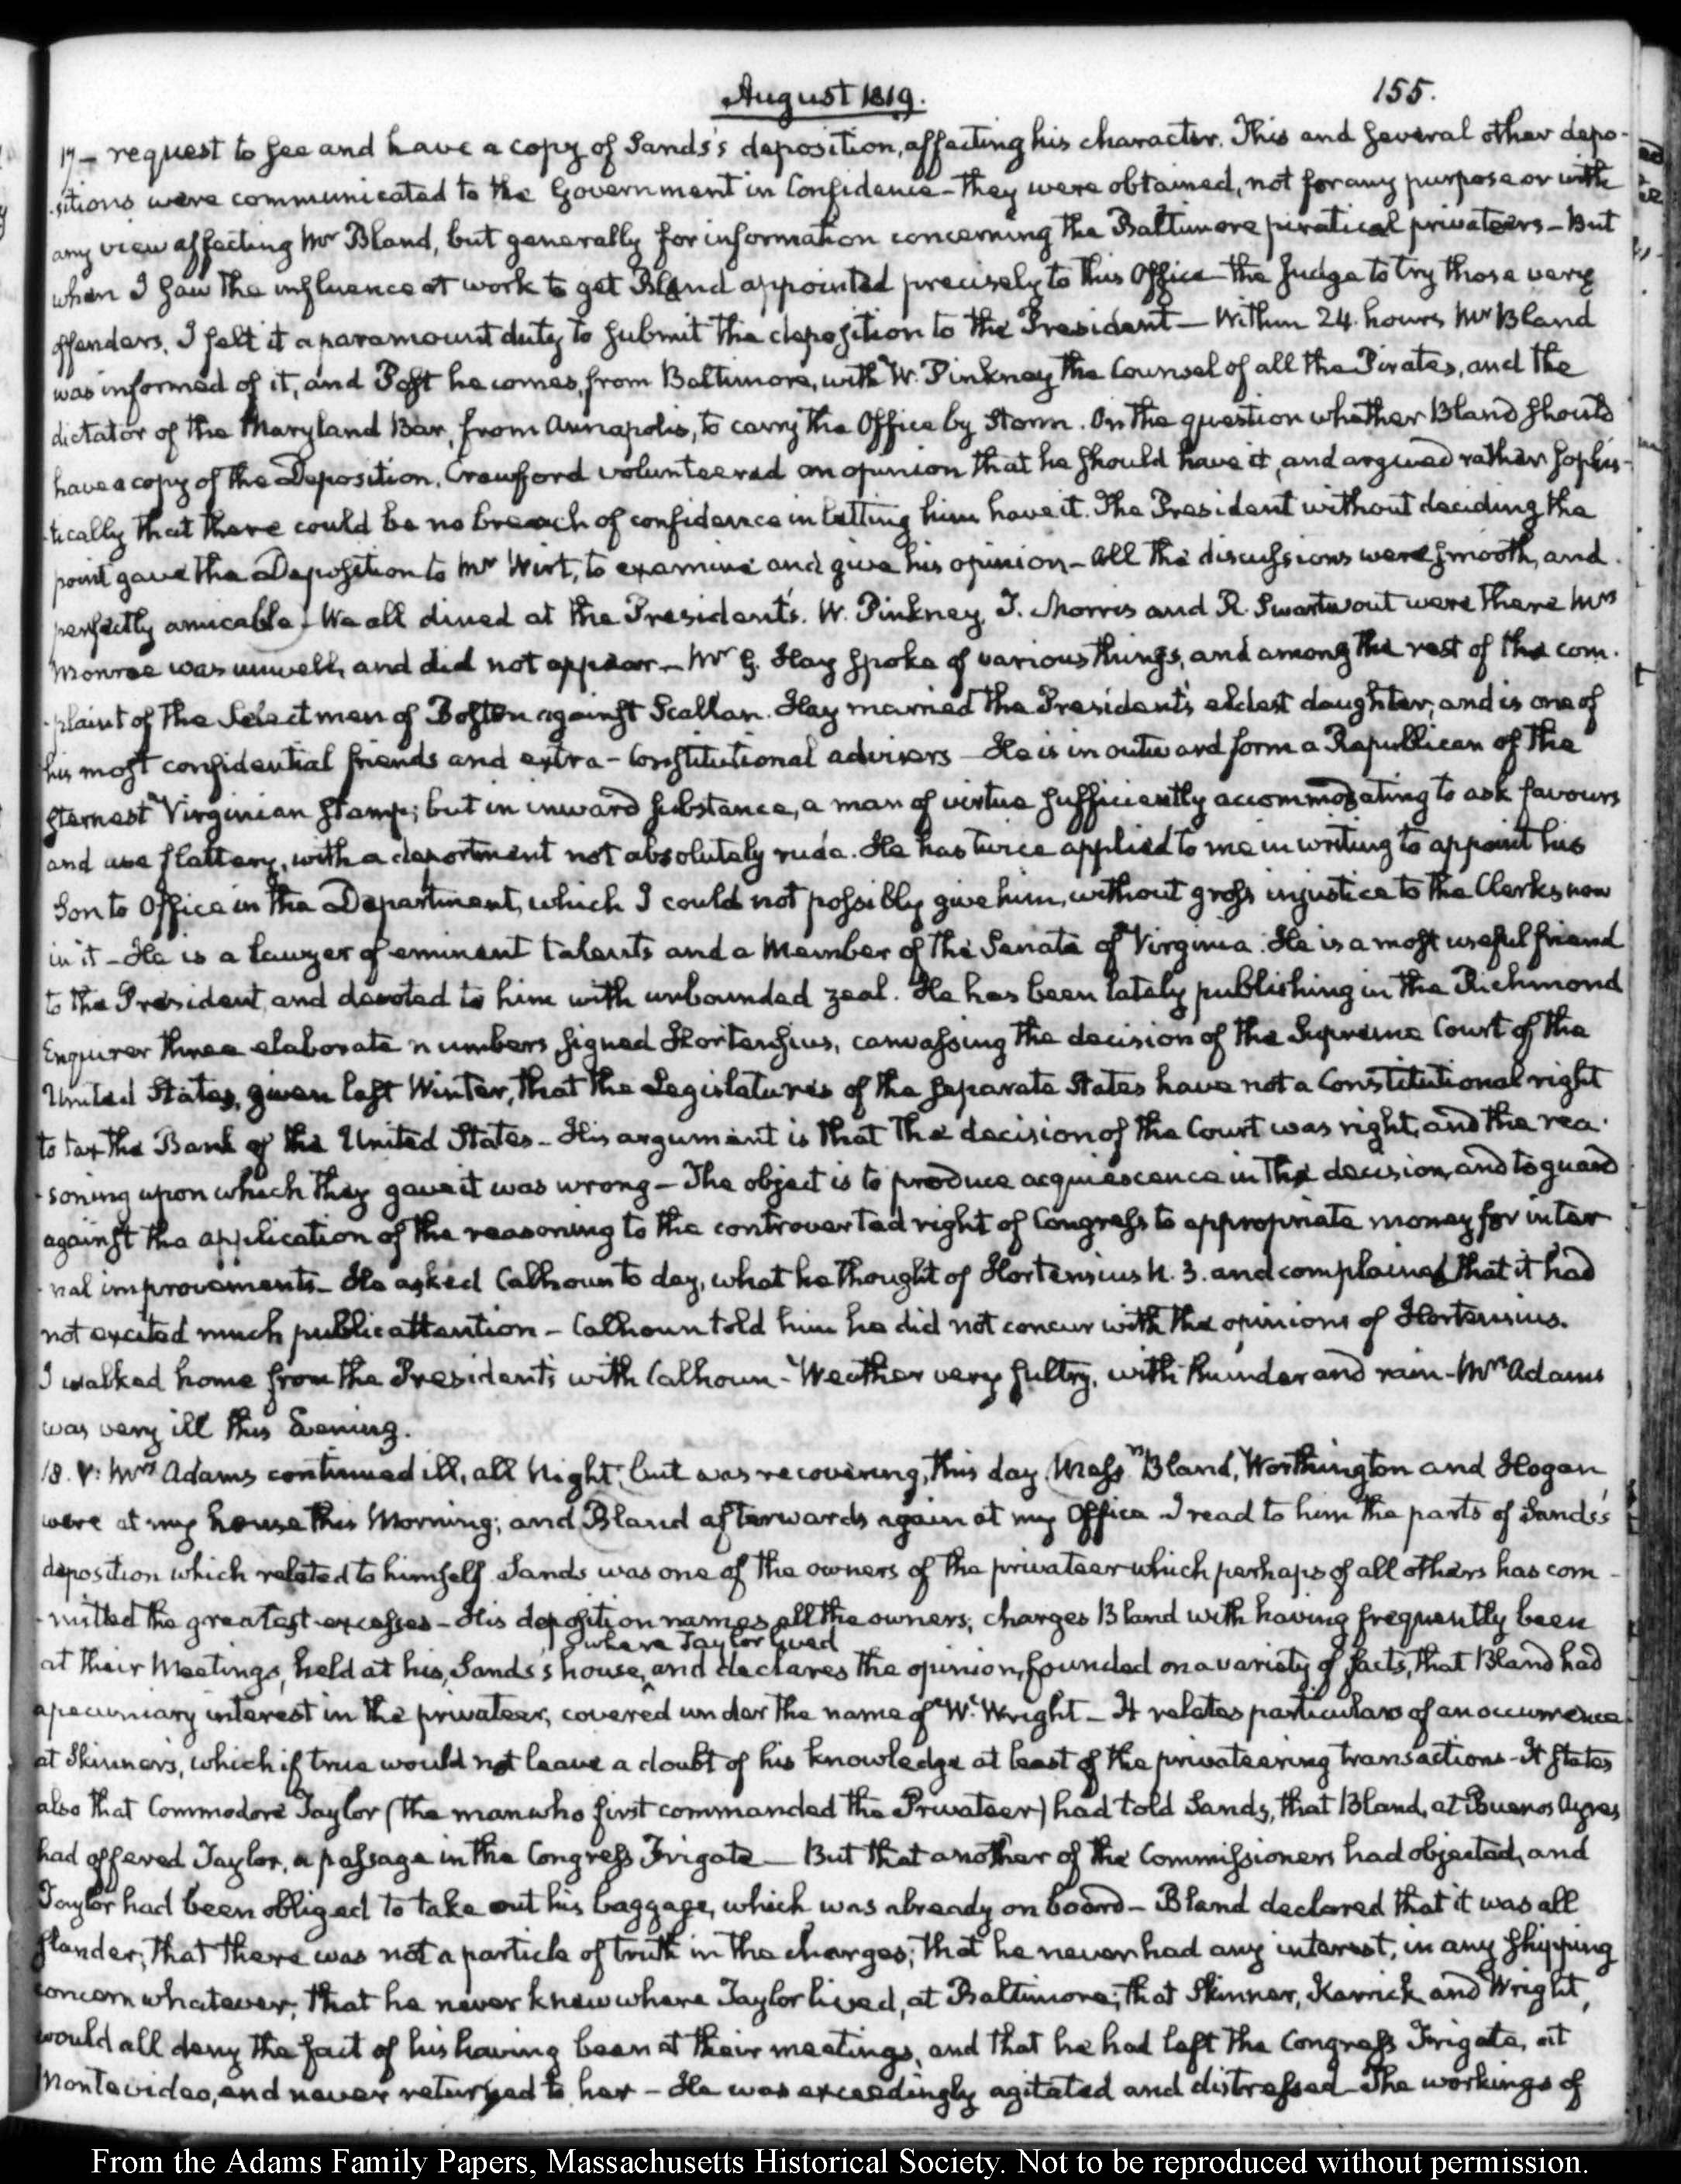 August 1819.
155.
17 — request to see and have a copy of Sands's deposition, affecting his character. This and several other depo-
-sitions were communicated to the Government in Confidence — they were obtained, not for any purpose or with
any view affecting Mr Bland, but generally for information concerning the Baltimore piratical privateers — But
when I saw the influence at work to get Bland appointed precisely to this Office — the Judge to try those very
offenders, I felt it a paramount duty to submit the deposition to the President — Within 24 hours Mr Bland
was informed of it, and Post he comes, from Baltimore, with W. Pinkney the Counsel of all the Pirates, and the
dictator of the Maryland Bar, from Annapolis, to carry the Office by Storm. On the question whether Bland should
have a copy of the Deposition, Crawford volunteered an opinion that he should have it, and argued rather sophis-
-tically that there could be no breach of confidence in letting him have it. The President without deciding the
point gave the Deposition to Mr Wirt, to examine and give his opinion — All the discussions were smooth, and
perfectly amicable — We all dined at the President's. W. Pinkney, T. Morris and R. Swartwout were there Mrs
Monroe was unwell, and did not appear — Mr G. Hay spoke of various things, and among the rest of the com-
-plaint of the Selectmen of Boston against Scallan. Hay married the President's eldest daughter; and is one of
his most confidential friends and extra-Constitutional advisers — He is in outward form a Republican of the
sternest Virginian stamp; but in inward substance, a man of virtue sufficiently accommodating to ask favours
and use flattery, with a deportment not absolutely rude. He has twice applied to me in writing to appoint his
Son to Office in the Department, which I could not possibly give him, without gross injustice to the Clerks now
in it — He is a lawyer of eminent talents and a Member of the Senate of Virginia. He is a most useful friend
to the President, and devoted to him with unbounded zeal. He has been lately publishing in the Richmond
Enquirer three elaborate numbers signed Hortensius, canvassing the decision of the Supreme Court of the
United States, given last Winter, that the Legislatures of the separate States have not a Constitutional right
to tax the Bank of the United States — His argument is that the decision of the Court was right, and the rea-
-soning upon which they gave it was wrong — The object is to produce acquiescence in the decision, and to guard
against the application of the reasoning to the controverted right of Congress to appropriate money for inter
-nal improvements — He asked Calhoun to day, what he thought of Hortensius N. 3. and complained that it had
not excited much public attention — Calhoun told him he did not concur with the opinions of Hortensius.
I walked home from the President's with Calhoun — Weather very sultry, with thunder and rain — Mrs Adams
was very ill this Evening.
18. V: Mrs Adams continued ill, all Night; but was recovering, this day. Messrs Bland, Worthington and Hogan,
were at my house this Morning; and Bland afterwards again at my Office — I read to him the parts of Sands's
deposition which related to himself. Sands was one of the owners of the privateer which perhaps of all others has com-
-mitted the greatest excesses — His deposition names all the owners; charges Bland with having frequently been
where Taylor lived
at their Meetings, held at his, Sands's house, and declares the opinion, founded on a variety of facts, that Bland had
a pecuniary interest in the privateer, covered under the name of W. Wright — It relates particulars of an occurrence
at Skinner's, which if true would not leave a doubt of his knowledge at least of the privateering transactions — It states
also that Commodore Taylor (the man who first commanded the Privateer) had told Sands, that Bland, at Buenos Ayres
had offered Taylor, a passage in the Congress Frigate — But that another of the Commissioners had objected, and
Taylor had been obliged to take out his baggage, which was already on board — Bland declared that it was all
slander; that there was not a particle of truth in the charges; that he never had any interest, in any shipping
concern whatever; that he never knew where Taylor lived, at Baltimore; that Skinner, Karrick and Wright,
would all deny the fact of his having been at their meetings, and that he had left the Congress Frigate, at
Montevideo, and never returned to her — He was exceedingly agitated and distressed — The workings of
From the Adams Family Papers, Massachusetts Historical Society. Not to be reproduced without permission.